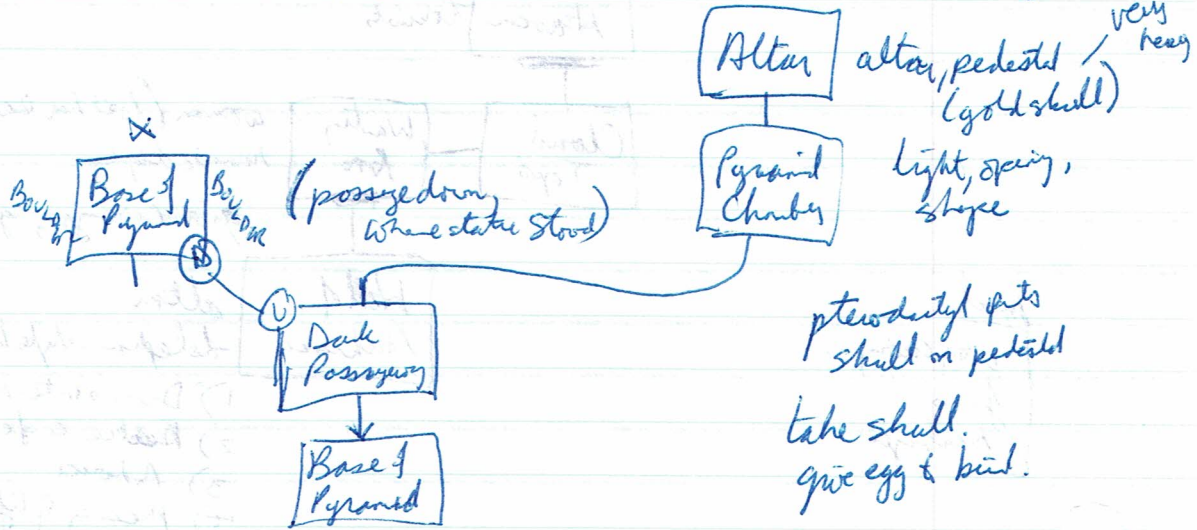 Altar
altar, pedestal / very heavy
(gold skull)
Pyramid
Chamber
light, opening,
shape
Base of
Pyramid
BOULDER
BOULDER
D
(passage down
where statue stood)
U
Dark
Passageway
Base of
Pyramid
pterodactyl puts
skull on pedestal
take skull.
give egg to bird.